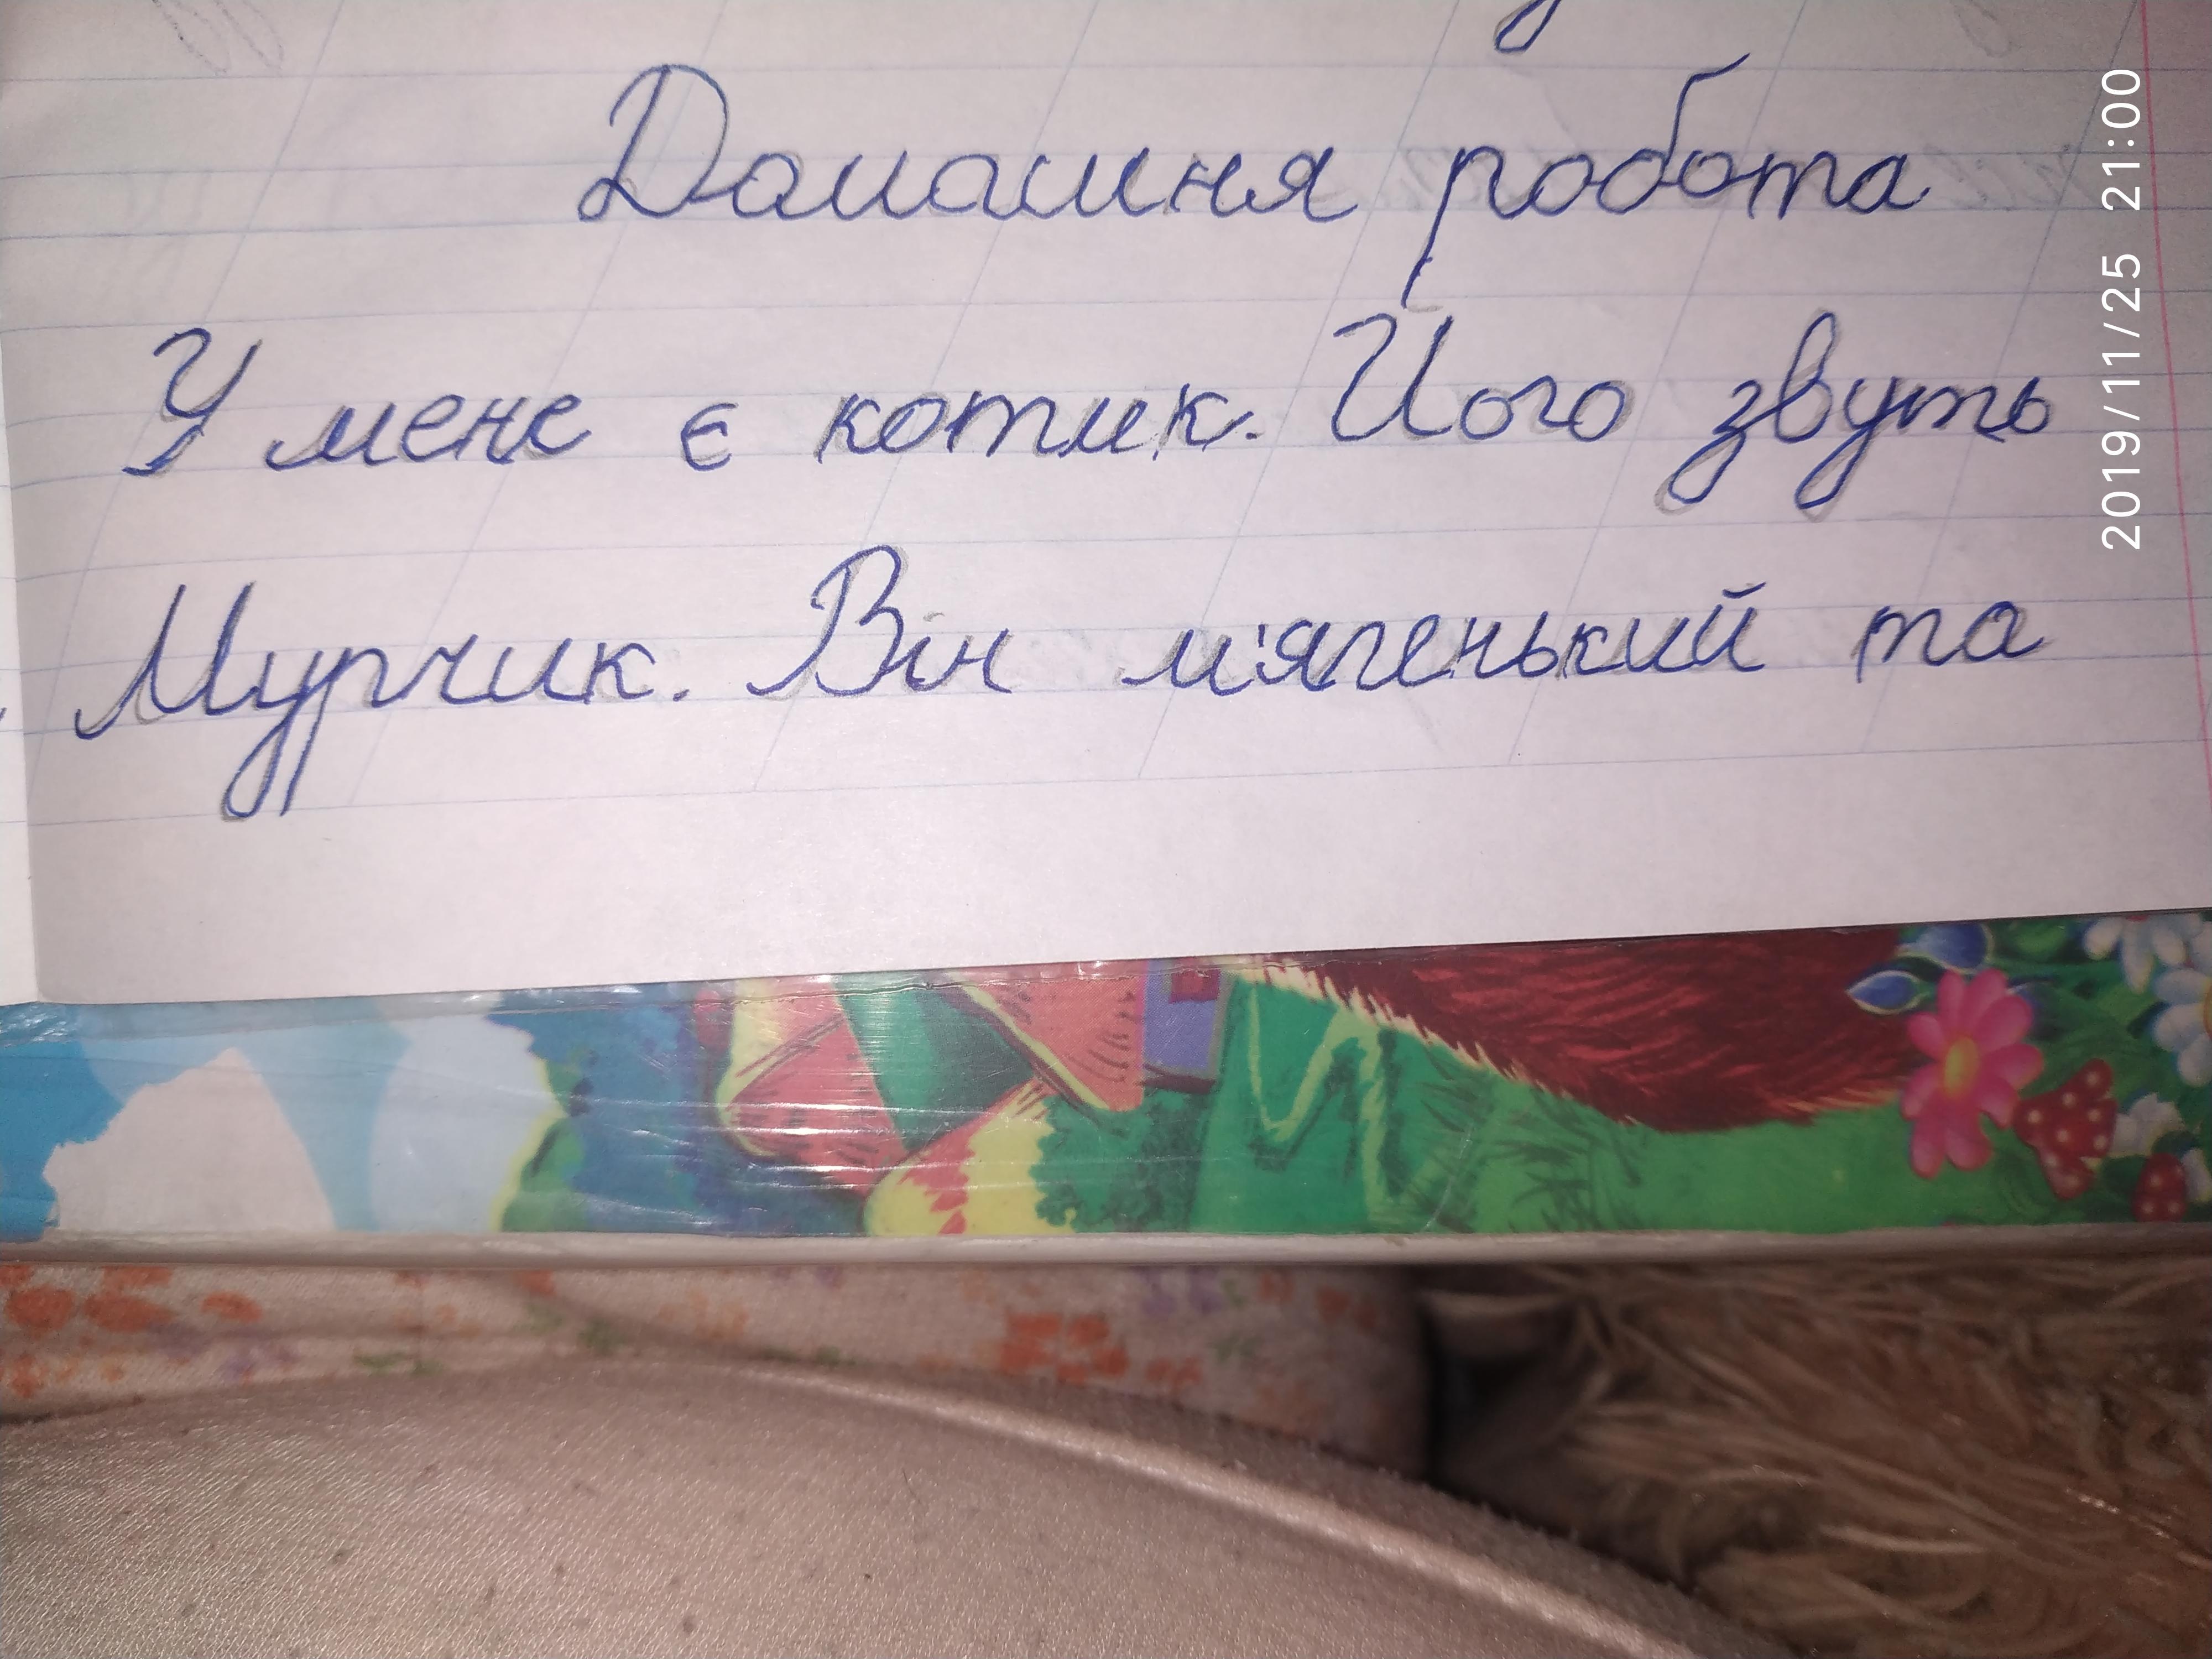 Домашня робота
У мене є котик. Його звуть
Мурчик. Він м'ягенький та
2019/11/25 21:00